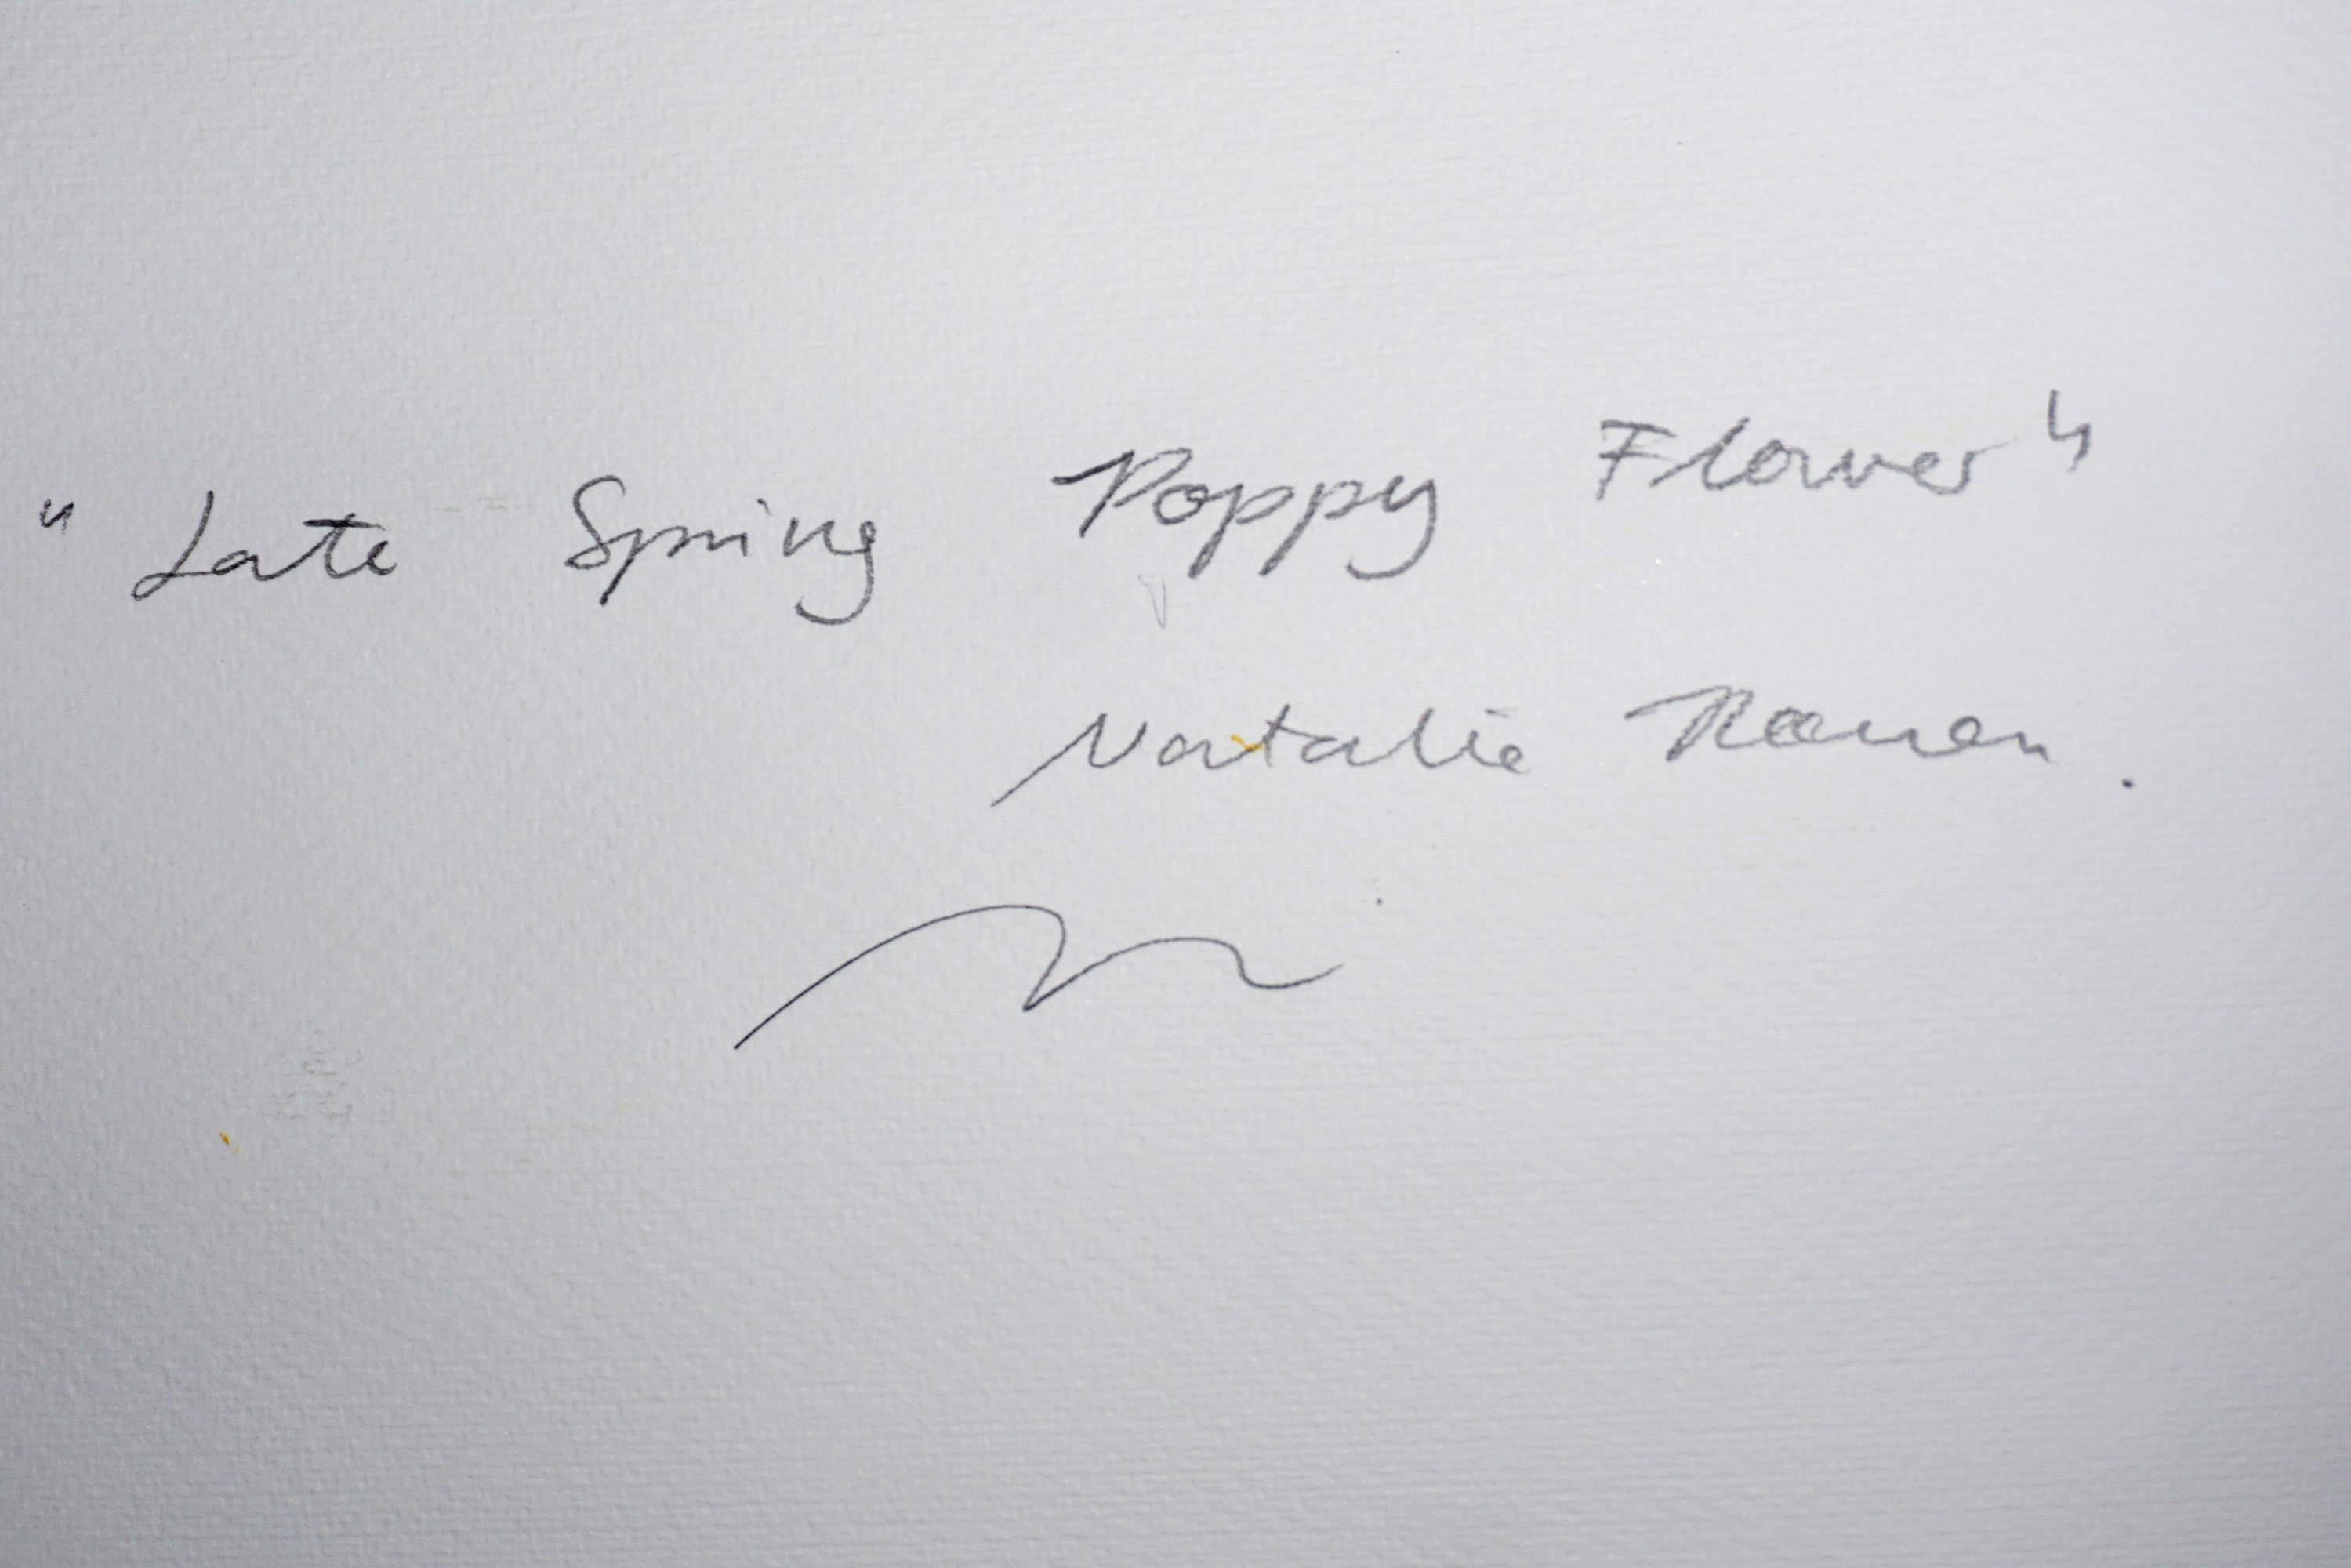 "Late Spring Poppy Flower"
Natalie